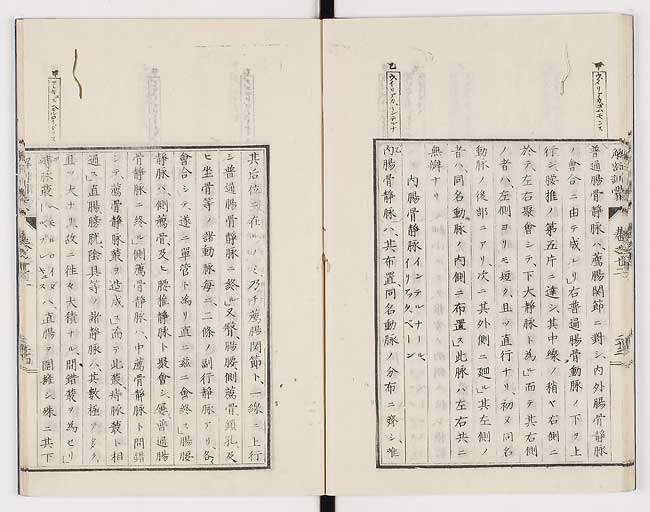 甲 ヴィリアカ、コムモンス
普通腸骨静脉ハ、薦腸関節ニ對シ、内外腸骨静脉
ノ會合ニ由テ成レリ、右普通腸骨動脉ノ下ヲ上
行シ、腰椎ノ第五片ニ達シ、其中線ノ稍ヤ右側ニ
於テ、左右聚會シテ、下大静脉ト為ル、而テ其右側
ノ者ハ、左側ヨリモ短ク、且ツ直行ナリ、初メ同名
動脉ノ後部ニアリ、次ニ其外側ニ廻ル、其左側ノ
者ハ、同名動脉ノ内側ニ布置ス、此脉ハ左右共ニ
無瓣ナリ
内腸骨静脉 インテルナール、イリアック、ベーン
乙 ヴィリアカ、インテルナ
内腸骨静脉ハ、其布置、同名動脉ノ分布ニ齊シ、唯
其后位ニ在ルノミ、乃チ薦腸関節ト、一線ニ上行
シ普通腸骨静脉ニ終ル、又臀、腸腰、側薦骨、鎖孔及
ヒ坐骨等ノ諸動脉毎ニ、二條ノ副行静脉アリ、各
會合シテ、遂ニ單管ト為リ直ニ茲ニ會終ス、腸腰
静脉ハ、側薦骨、及ヒ腰椎静脉ト聚會シ、屡普通腸
骨静脉ニ終ル、側薦骨静脉ハ、中薦骨静脉ト間錯
シテ、薦骨静脉叢ヲ造成ス、而テ此叢痔脉叢ト相
通ス、直腸、膀胱、陰具等ノ諸静脉ハ、其數極メテ多ク、
且ツ大ナリ、故ニ往々大積ナル、間錯叢ヲ為セリ、
甲
痔脉叢ハ、直腸ヲ圍擁シ、殊ニ其下